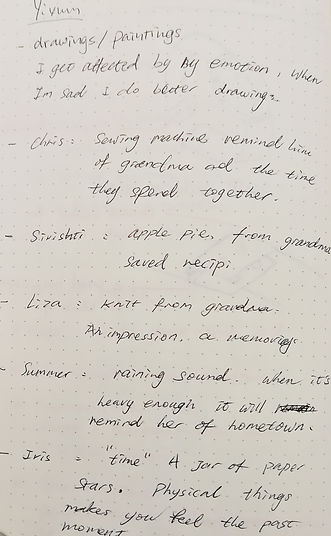 Yixuan
- drawings/paintings
I get affected by by emotion, when
I'm sad I do better drawings.
- Chris: Sewing machine remind him
of grandma and the time
they spend together.
- Sirishti: apple pie, from grandma
saved recipi
- Liza: knit from grandma.
An impression. a memories.
- Summer: raining sound. when it's
heavy enough it will
remind her of hometown.
- Iris: "time" A jar of paper
stars. Physical things
makes you feel the past
moment